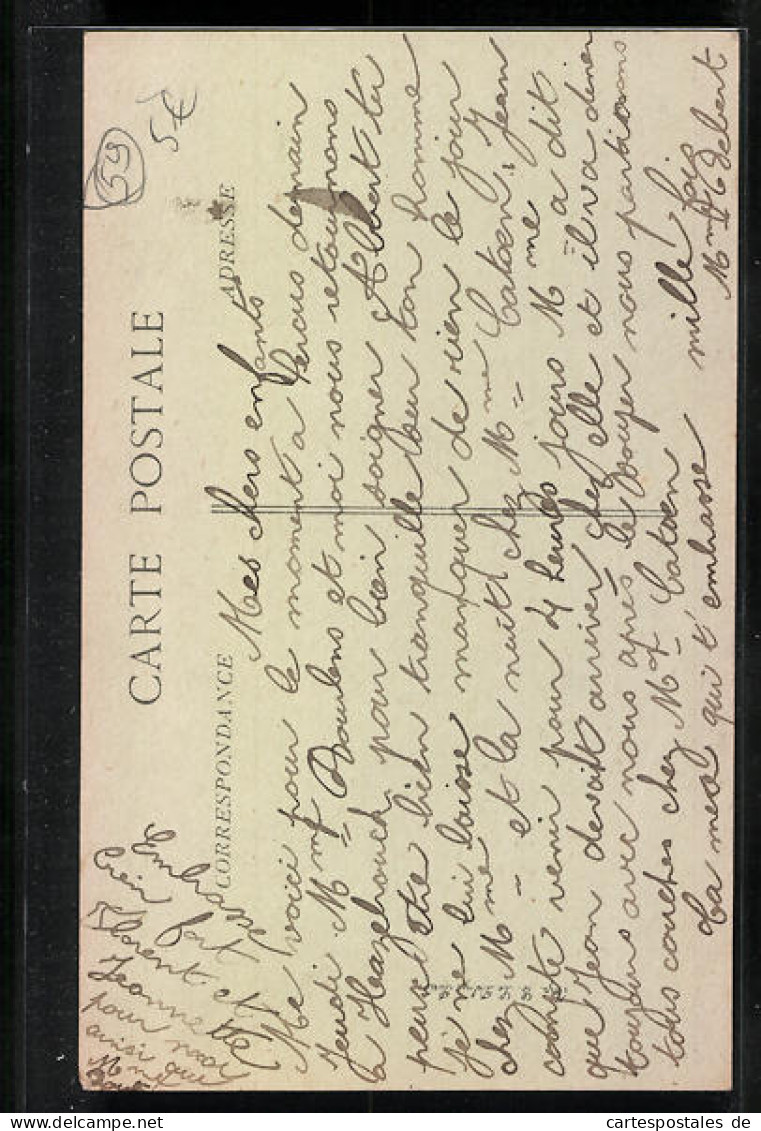 59
5€
CARTE POSTALE
CORRESPONDANCE
ADRESSE
Mes chers enfants
Me voici pour le moment a Furcus demain
Jeudi Mme Boulens et moi nous retournons
a Hazebrouck pour bien soigner Albert tu
peus etre bien tranquille bur ton homme
je ne lui laisse manquer de rien le jour
chez Mme et la nuit chez Mme Catoen, Jean
compte venir pour 4 heures jours Mme a dit
que Jean devait arriver chez elle et il va diner
toujours avec nous après le souper nous partirons
tous coucher chez Mme Catoen mille fois
Ta mere qui t'embrasse
Mme Debert
Embrasse
bien fort
Florent et
Jeannette
pour moi
ainsi que
Mme